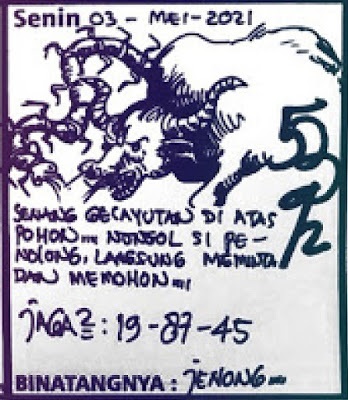 Senin 03 - MEI - 2021
SENANG GECAYUTAN DI ATAS
POHON... NONGOL SI PE-
NOLONG, LANGSUNG MEMINTA
DAN MEMOHON...
JAGA2 : 19 - 87 - 45
BINATANGNYA : JENONG...